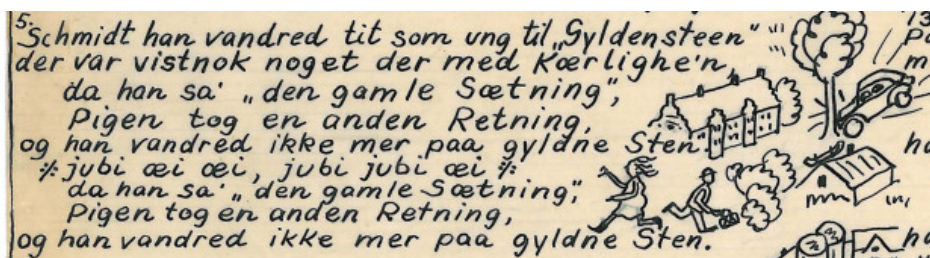 5.
Schmidt han vandred tit som ung til „Gyldensteen"
der var vistnok noget der med Kærlighe'n,
da han sa' „den gamle Sætning",
Pigen tog en anden Retning,
og han vandred ikke mer paa gyldne Sten.
⁒ jubi æi æi, jubi jubi æi ⁒
da han sa' „den gamle Sætning",
Pigen tog en anden Retning,
og han vandred ikke mer paa gyldne Sten.
13
Pa
m
ha
ha